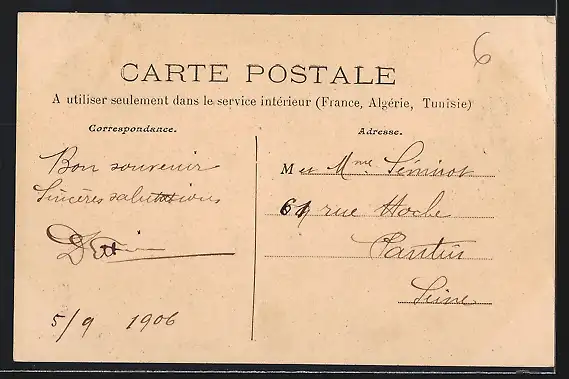 6
CARTE POSTALE
A utiliser seulement dans le service intérieur (France, Algérie, Tunisie)
Correspondance.
Adresse.
Bon souvenir
Sincères salutations
5/9 1906
M et Mme
61 rue Hoche
Pantin
Seine